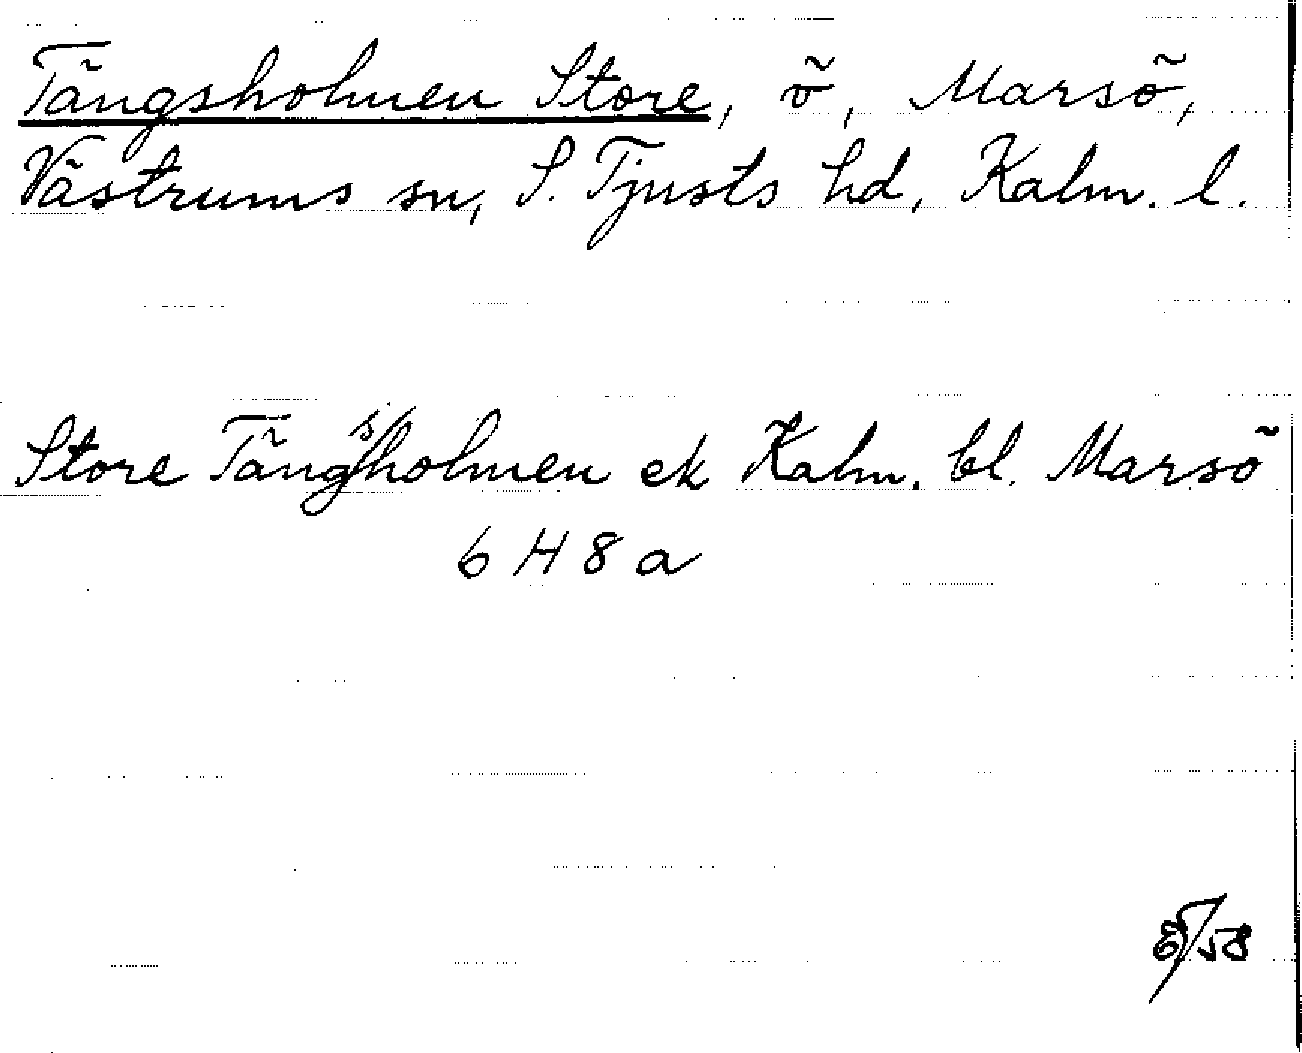 Tängsholmen Store, ö, Marsö,
Västrums sn, S. Tjusts hd, Kalm. l.
Store Tängsholmen ek Kalm. bl. Marsö
6 H 8 a